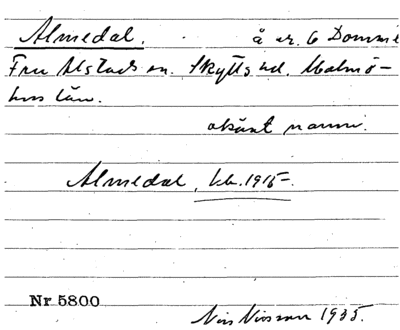 Almedal. å nr. 6 Dommie
Fru Alstads sn. Skytts hd. Malmö-
hus län.
okänt namn.
Almedal, kb. 1915.
Nr 5800
Nils Nilsson 1935.